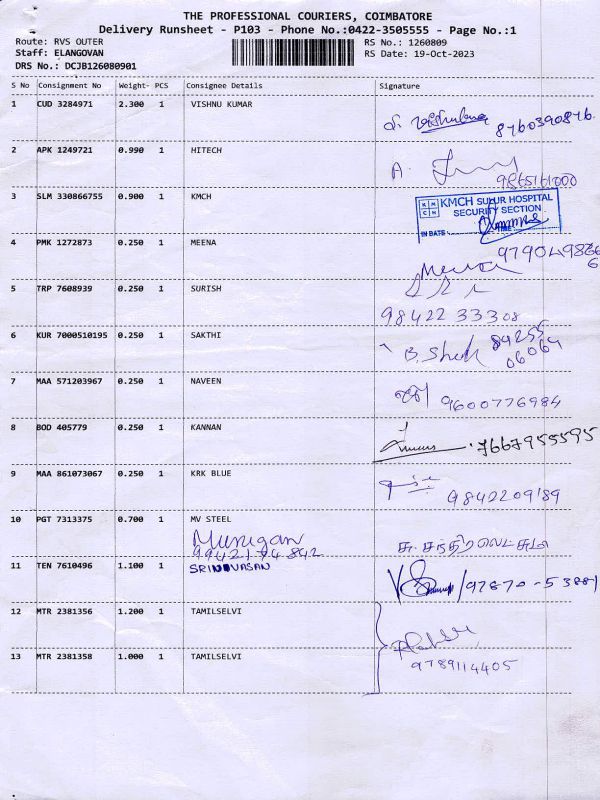 THE PROFESSIONAL COURIERS, COIMBATORE
Delivery Runsheet - P103 - Phone No.:0422-3505555 - Page No.:1
Route: RVS OUTER RS No.: 1260809
Staff: ELANGOVAN RS Date: 19-Oct-2023
DRS No.: DCJB126080901
S No Consignment No Weight- PCS Consignee Details Signature
1 CUD 3284971 2.300 1 VISHNU KUMAR
8760390876.
2 APK 1249721 0.990 1 HITECH
A.
9865161000
3 SLM 330866755 0.900 1 KMCH
KMCH SULUR HOSPITAL
SECURITY SECTION
IN DATE TIME
4 PMK 1272873 0.250 1 MEENA
Meena
5 TRP 7608939 0.250 1 SURISH
98422 33308
6 KUR 7000510195 0.250 1 SAKTHI
84255
06064
7 MAA 571203967 0.250 1 NAVEEN
9600776984
8 BOD 405779 0.250 1 KANNAN
7667955595
9 MAA 861073067 0.250 1 KRK BLUE
9842209189
10 PGT 7313375 0.700 1 MV STEEL
Murugan
9942174842
11 TEN 7610496 1.100 1 SRINIVASAN
97870-53881
12 MTR 2381356 1.200 1 TAMILSELVI
13 MTR 2381358 1.000 1 TAMILSELVI
9789114405